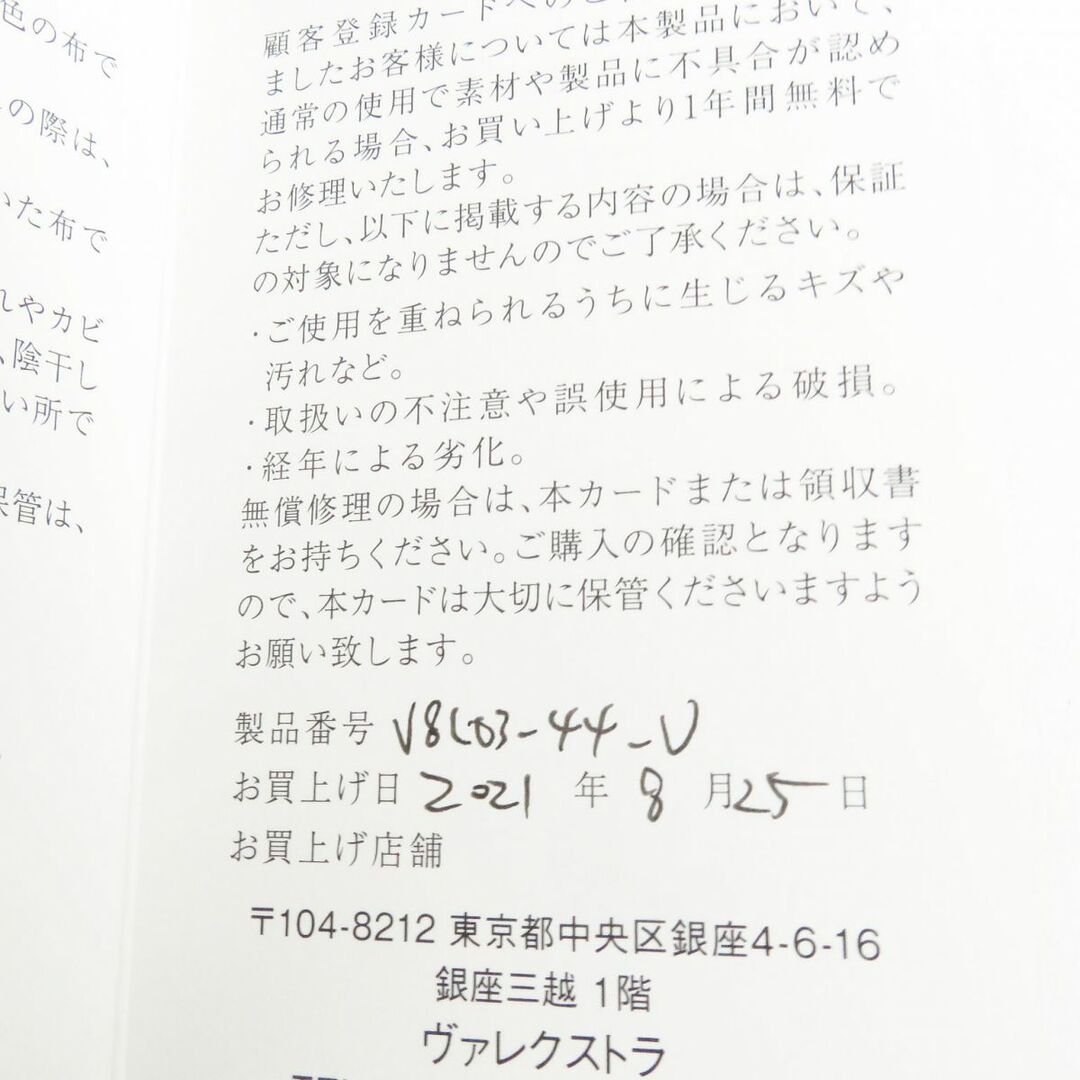 色の布で
の際は、
いた布で
れやカビ
、陰干し
い所で
保管は、
顧客登録カードへのご
ましたお客様については本製品において、
通常の使用で素材や製品に不具合が認め
られる場合、お買い上げより1年間無料で
お修理いたします。
ただし、以下に掲載する内容の場合は、保証
の対象になりませんのでご了承ください。
・ご使用を重ねられるうちに生じるキズや
汚れなど。
・取扱いの不注意や誤使用による破損。
・経年による劣化。
無償修理の場合は、本カードまたは領収書
をお持ちください。ご購入の確認となります
ので、本カードは大切に保管くださいますよう
お願い致します。
製品番号 V8L03-44-U
お買上げ日 2021 年 8 月 25 日
お買上げ店舗
〒104-8212 東京都中央区銀座4-6-16
銀座三越 1階
ヴァレクストラ